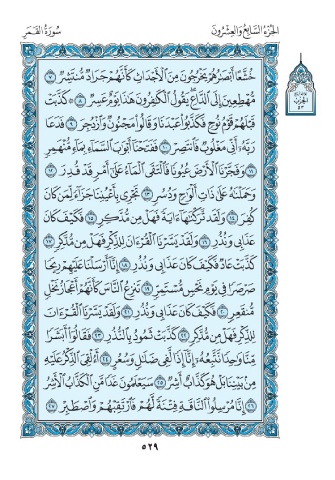 الجزء السابع والعشرون
سورة القمر
خُشَّعًا أَبْصَٰرُهُمْ يَخْرُجُونَ مِنَ ٱلْأَجْدَاثِ كَأَنَّهُمْ جَرَادٌ مُّنتَشِرٌ ٧
مُّهْطِعِينَ إِلَى ٱلدَّاعِ يَقُولُ ٱلْكَٰفِرُونَ هَٰذَا يَوْمٌ عَسِرٌ ٨ كَذَّبَتْ
قَبْلَهُمْ قَوْمُ نُوحٍ فَكَذَّبُوا۟ عَبْدَنَا وَقَالُوا۟ مَجْنُونٌ وَٱزْدُجِرَ ٩ فَدَعَا
رَبَّهُۥٓ أَنِّى مَغْلُوبٌ فَٱنتَصِرْ ١٠ فَفَتَحْنَآ أَبْوَٰبَ ٱلسَّمَآءِ بِمَآءٍ مُّنْهَمِرٍ
١١ وَفَجَّرْنَا ٱلْأَرْضَ عُيُونًا فَٱلْتَقَى ٱلْمَآءُ عَلَىٰٓ أَمْرٍ قَدْ قُدِرَ ١٢
وَحَمَلْنَٰهُ عَلَىٰ ذَاتِ أَلْوَٰحٍ وَدُسُرٍ ١٣ تَجْرِى بِأَعْيُنِنَا جَزَآءً لِّمَن كَانَ
كُفِرَ ١٤ وَلَقَد تَّرَكْنَٰهَآ ءَايَةً فَهَلْ مِن مُّدَّكِرٍ ١٥ فَكَيْفَ كَانَ
عَذَابِى وَنُذُرِ ١٦ وَلَقَدْ يَسَّرْنَا ٱلْقُرْءَانَ لِلذِّكْرِ فَهَلْ مِن مُّدَّكِرٍ ١٧
كَذَّبَتْ عَادٌ فَكَيْفَ كَانَ عَذَابِى وَنُذُرِ ١٨ إِنَّآ أَرْسَلْنَا عَلَيْهِمْ رِيحًا
صَرْصَرًا فِى يَوْمِ نَحْسٍ مُّسْتَمِرٍّ ١٩ تَنزِعُ ٱلنَّاسَ كَأَنَّهُمْ أَعْجَازُ نَخْلٍ
مُّنقَعِرٍ ٢٠ فَكَيْفَ كَانَ عَذَابِى وَنُذُرِ ٢١ وَلَقَدْ يَسَّرْنَا ٱلْقُرْءَانَ
لِلذِّكْرِ فَهَلْ مِن مُّدَّكِرٍ ٢٢ كَذَّبَتْ ثَمُودُ بِٱلنُّذُرِ ٢٣ فَقَالُوٓا۟ أَبَشَرًا
مِّنَّا وَٰحِدًا نَّتَّبِعُهُۥٓ إِنَّآ إِذًا لَّفِى ضَلَٰلٍ وَسُعُرٍ ٢٤ أَءُلْقِىَ ٱلذِّكْرُ عَلَيْهِ
مِنۢ بَيْنِنَا بَلْ هُوَ كَذَّابٌ أَشِرٌ ٢٥ سَيَعْلَمُونَ غَدًا مَّنِ ٱلْكَذَّابُ ٱلْأَشِرُ
٢٦ إِنَّا مُرْسِلُوا۟ ٱلنَّاقَةِ فِتْنَةً لَّهُمْ فَٱرْتَقِبْهُمْ وَٱصْطَبِرْ ٢٧
٥٢٩